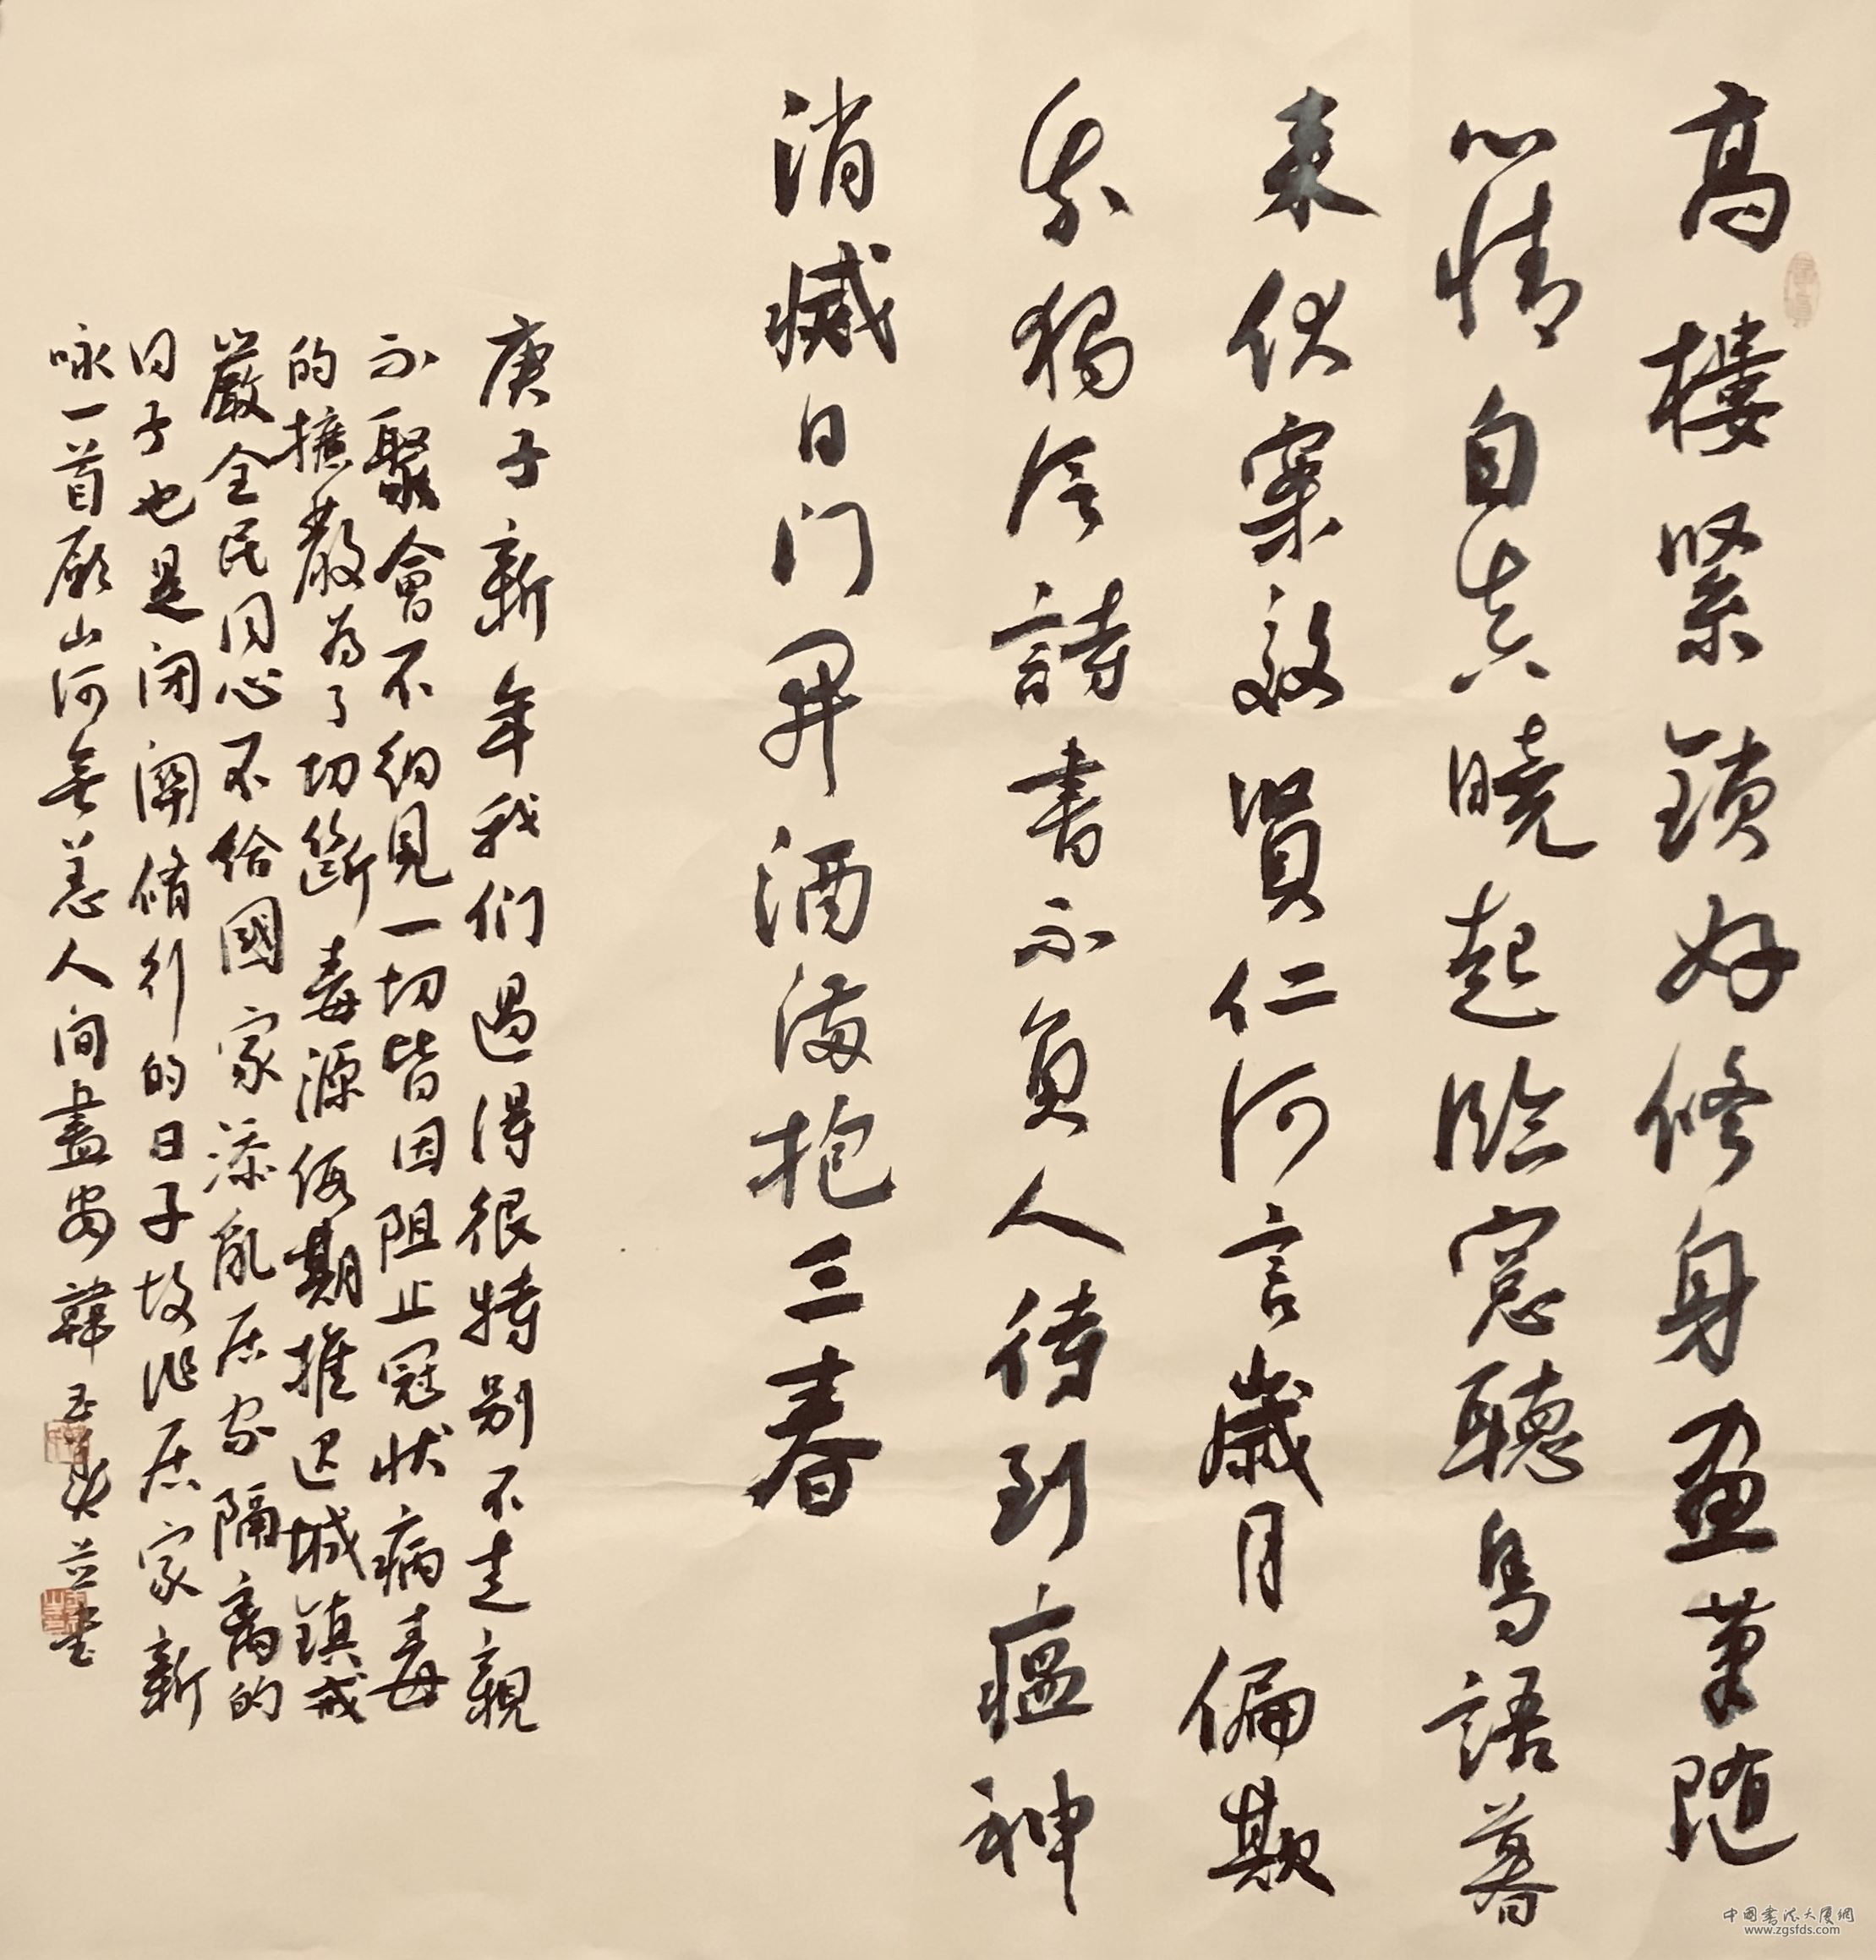 高樓緊鎖好修身畫筆随
心情自真曉起臨窓聽鳥語暮
来伏案效賢仁何言歲月偏欺
我獨吟詩書不負人待到瘟神
消滅日门开酒满抱三春
庚子新年我们過得很特别不走親
不聚會不約見一切皆因阻止冠状病毒
的擴散为了切斷毒源假期推迟城鎮戒
嚴全民同心不给國家添亂居家隔離的
日子也是闭關脩行的日子故作居家新
咏一首願山河無恙人间盡安韓玉 並書
中国書法大厦網
www.zgsfds.com